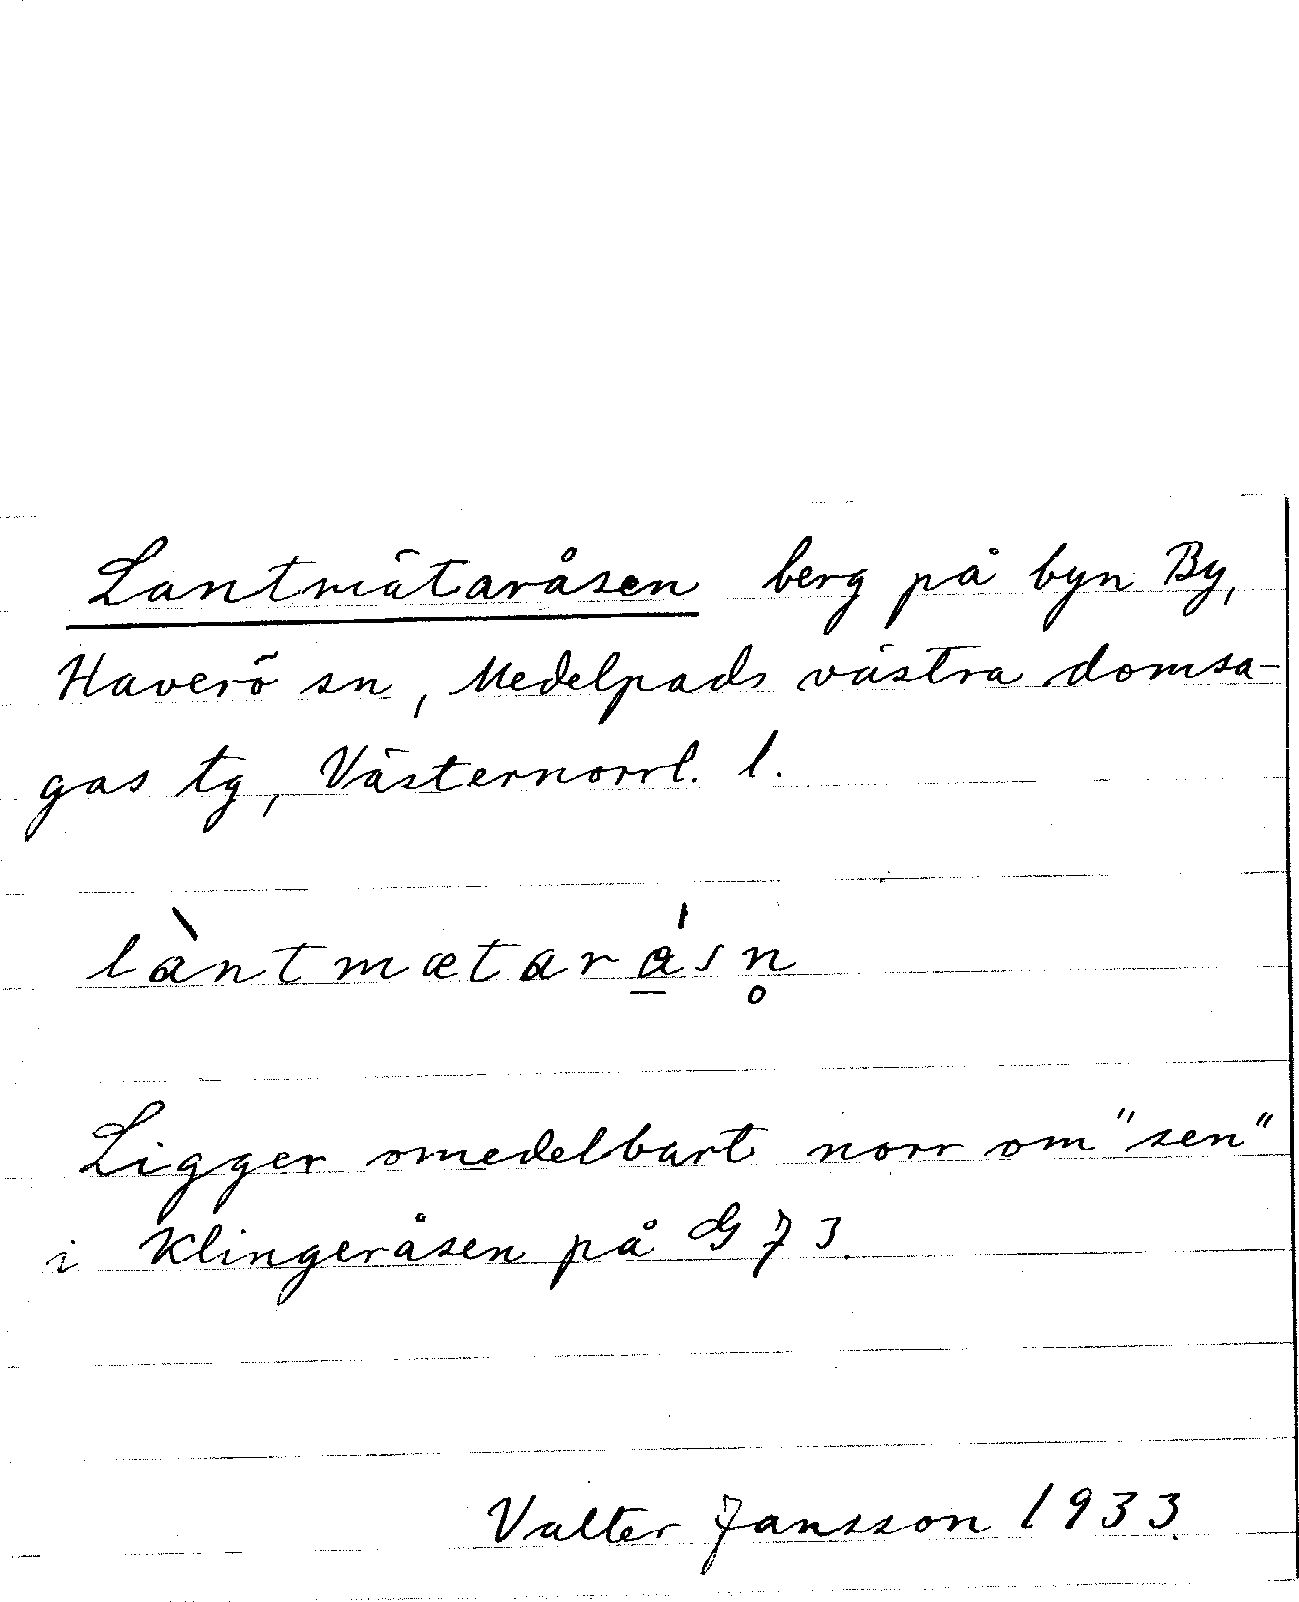 Lantmätaråsen berg på byn By,
Haverö sn, Medelpads västra domsa-
gas tg, Västernorrl. l.
làntmætará̲sn̥
Ligger omedelbart norr om "sen"
i Klingeråsen på G 73.
Valter Jansson 1933.